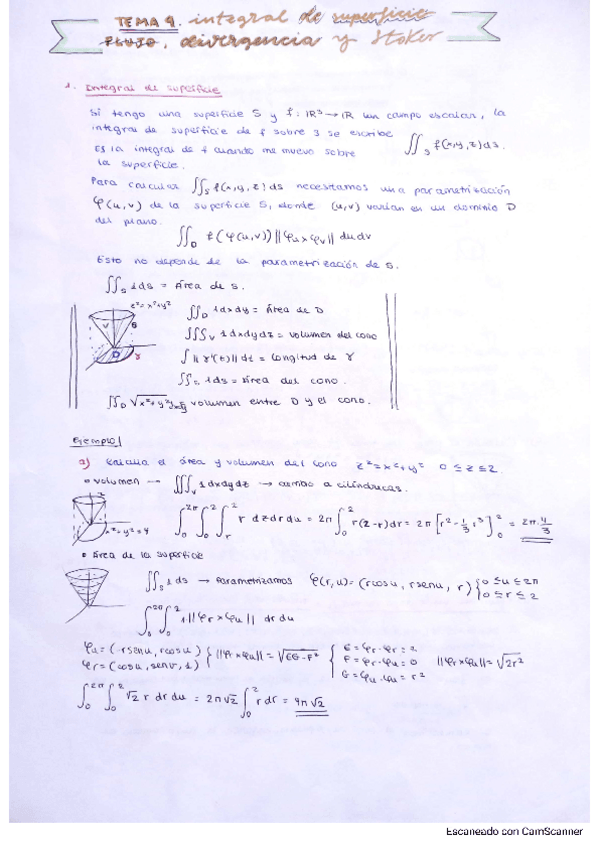 TEMA 9. integral de superficie
FLUJO, divergencia y Stokes
1. Integral de superficie
Si tengo una superficie S y f: IR³→IR un campo escalar, la
integral de superficie de f sobre S se escribe ∬_S f(x,y,z)ds.
Es la integral de f cuando me muevo sobre
la superficie.
Para calcular ∬_S f(x,y,z)ds necesitamos una parametrización
φ(u,v) de la superficie S, donde (u,v) varían en un dominio D
del plano.
∬_D f(φ(u,v)) ||φu×φv|| dudv
Esto no depende de la parametrización de S.
∬_S 1ds = Área de S.
z²=x²+y²
V
S
D
γ
∬_D 1dxdy = Área de D
∭_V 1dxdydz = volumen del cono
∫||γ'(t)||dt = longitud de γ
∬_S 1ds = área del cono.
∬_D √x²+y² dxdy volumen entre D y el cono.
Ejemplo
a) Calcula el área y volumen del cono z²=x²+y² 0≤z≤2.
• volumen → ∭_V 1dxdydz → cambio a cilíndricas.
z
x²+y²=4
∫_0^2π ∫_0^2 ∫_r^2 r dzdrdu = 2π ∫_0^2 r(2-r)dr = 2π [r²-1/3 r³]_0^2 = 2π·4/3
• Área de la superficie
∬_S 1ds → Parametrizamos φ(r,u)=(rcosu, rsenu, r) { 0≤u≤2π
0≤r≤2
∫_0^2π ∫_0^2 1||φr×φu|| drdu
φu=(-rsenu, rcosu) } ||φr×φu||=√EG-F² { E=φr·φr=2
φr=(cosu, senu, 1) F=φr·φu=0 ||φr×φu||=√2r²
G=φu·φu=r²
∫_0^2π ∫_0^2 √2 r drdu = 2π√2 ∫_0^2 r dr = 4π√2
Escaneado con CamScanner